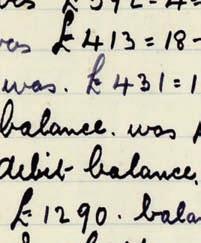 £392=4=
was £413=18-
was. £431=1
balance. was
debit-balance.
£1290. bala